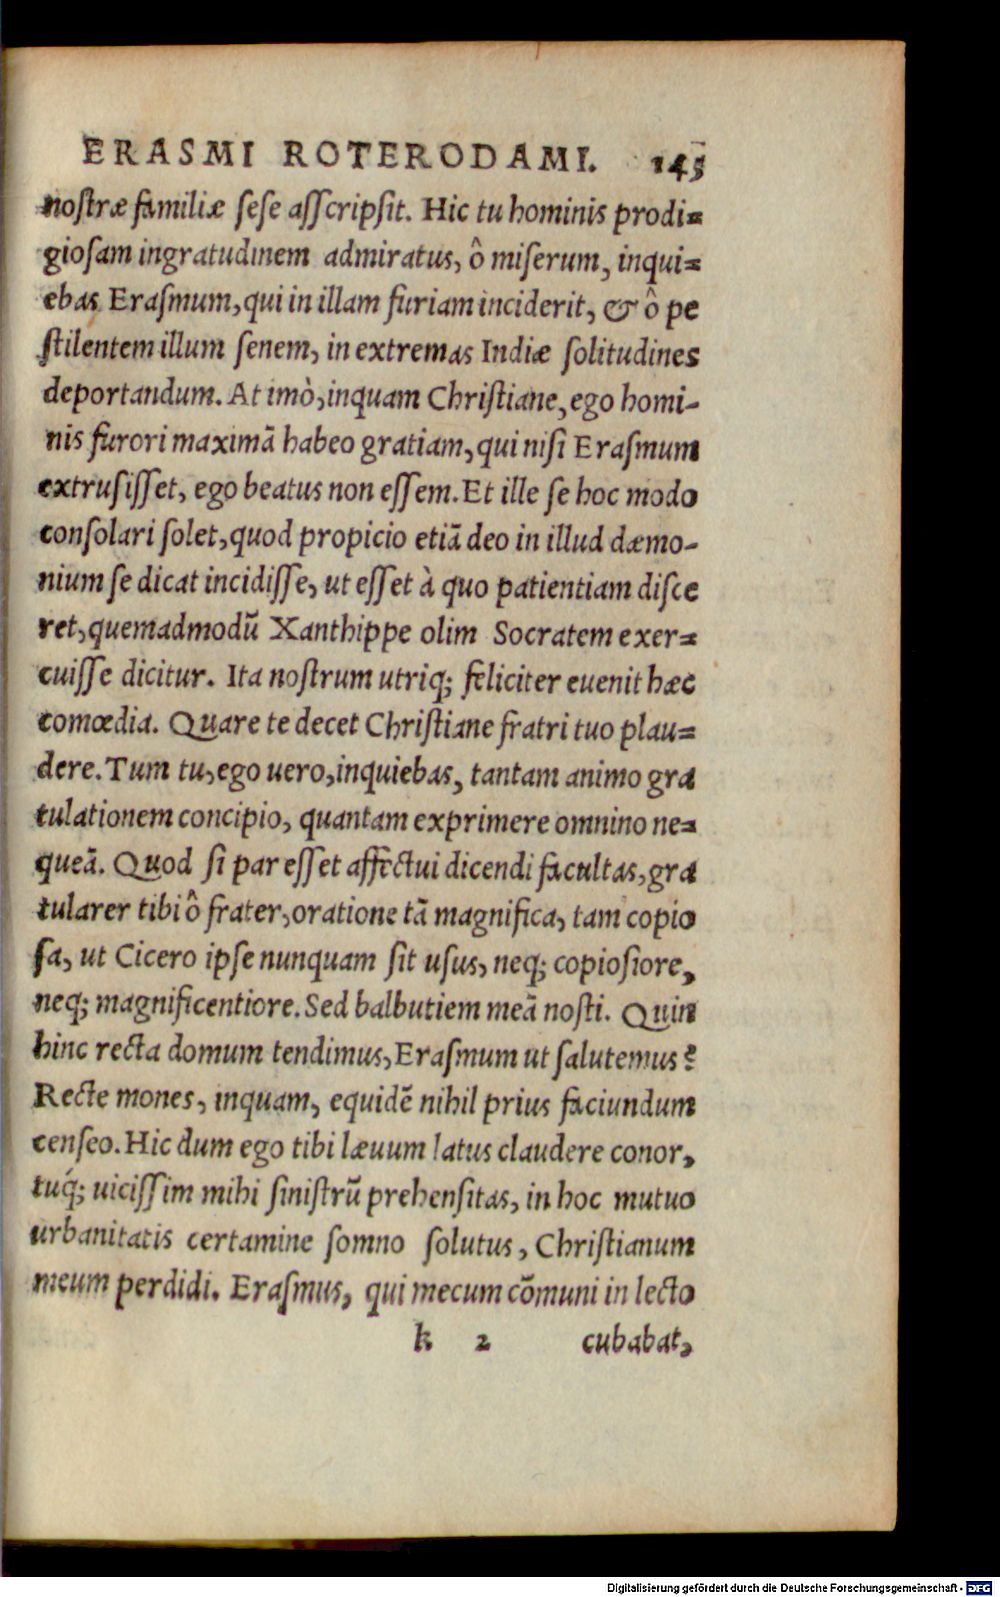 ERASMI ROTERODAMI. 145
nostræ familiæ sese asscripsit. Hic tu hominis prodi=
giosam ingratudinem admiratus, ô miserum, inqui=
ebas Erasmum, qui in illam furiam inciderit, & ô pe
stilentem illum senem, in extremas Indiæ solitudines
deportandum. At imò, inquam Christiane, ego homi-
nis furori maximā habeo gratiam, qui nisi Erasmum
extrusisset, ego beatus non essem. Et ille se hoc modo
consolari solet, quod propicio etiā deo in illud dæmo-
nium se dicat incidisse, ut esset à quo patientiam disce
ret, quemadmodū Xanthippe olim Socratem exer=
cuisse dicitur. Ita nostrum utriq; feliciter euenit hæc
comœdia. Quare te decet Christiane fratri tuo plau=
dere. Tum tu, ego uero, inquiebas, tantam animo gra
tulationem concipio, quantam exprimere omnino ne=
queā. Quod si par esset affectui dicendi facultas, gra
tularer tibi ô frater, oratione tā magnifica, tam copio
sa, ut Cicero ipse nunquam sit usus, neq; copiosiore,
neq; magnificentiore. Sed balbutiem meā nosti. Quin
hinc recta domum tendimus, Erasmum ut salutemus?
Recte mones, inquam, equidē nihil prius faciundum
censeo. Hic dum ego tibi læuum latus claudere conor,
tuq́; uicissim mihi sinistrū prehensitas, in hoc mutuo
urbanitatis certamine somno solutus, Christianum
meum perdidi. Erasmus, qui mecum cōmuni in lecto
k 2 cubabat,
Digitalisierung gefördert durch die Deutsche Forschungsgemeinschaft - DFG